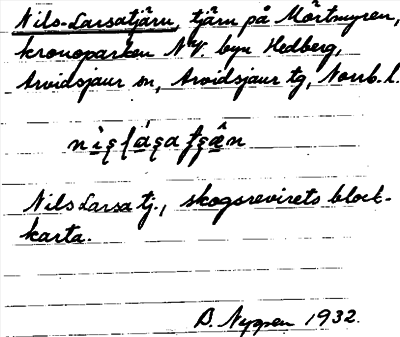 Nils-Larsatjärn, tjärn på Mörtmyren,
kronoparken N.V. byn Hedberg,
Arvidsjaur sn, Arvidsjaur tg, Norrb. l.
Nils Larsa tj., skogsrevirets block-
karta.
B. Nygren 1932.